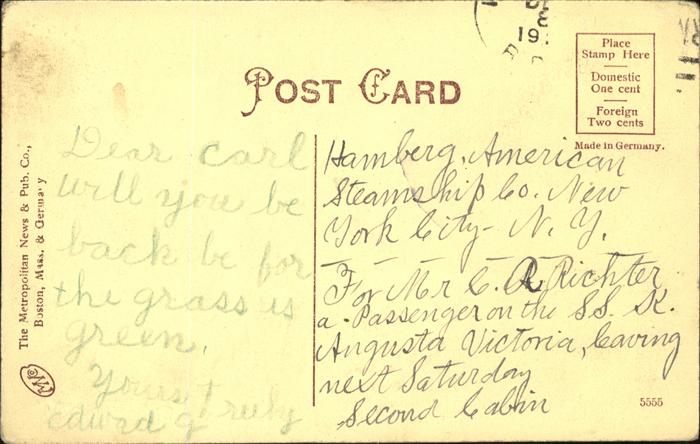 POST CARD
19
Place
Stamp Here
Domestic
One cent
Foreign
Two cents
Made in Germany.
The Metropolitan News & Pub. Co.,
Boston, Mass. & Germany
Dear carl
will you be
back be for
the grass is
green.
Yours
edward
Hamberg, American
Steamship Co. New
York City - N. Y.
For Mr C. A. Richter
a - Passenger on the SS. K.
Augusta Victoria, leaving
next Saturday
Second Cabin
5555